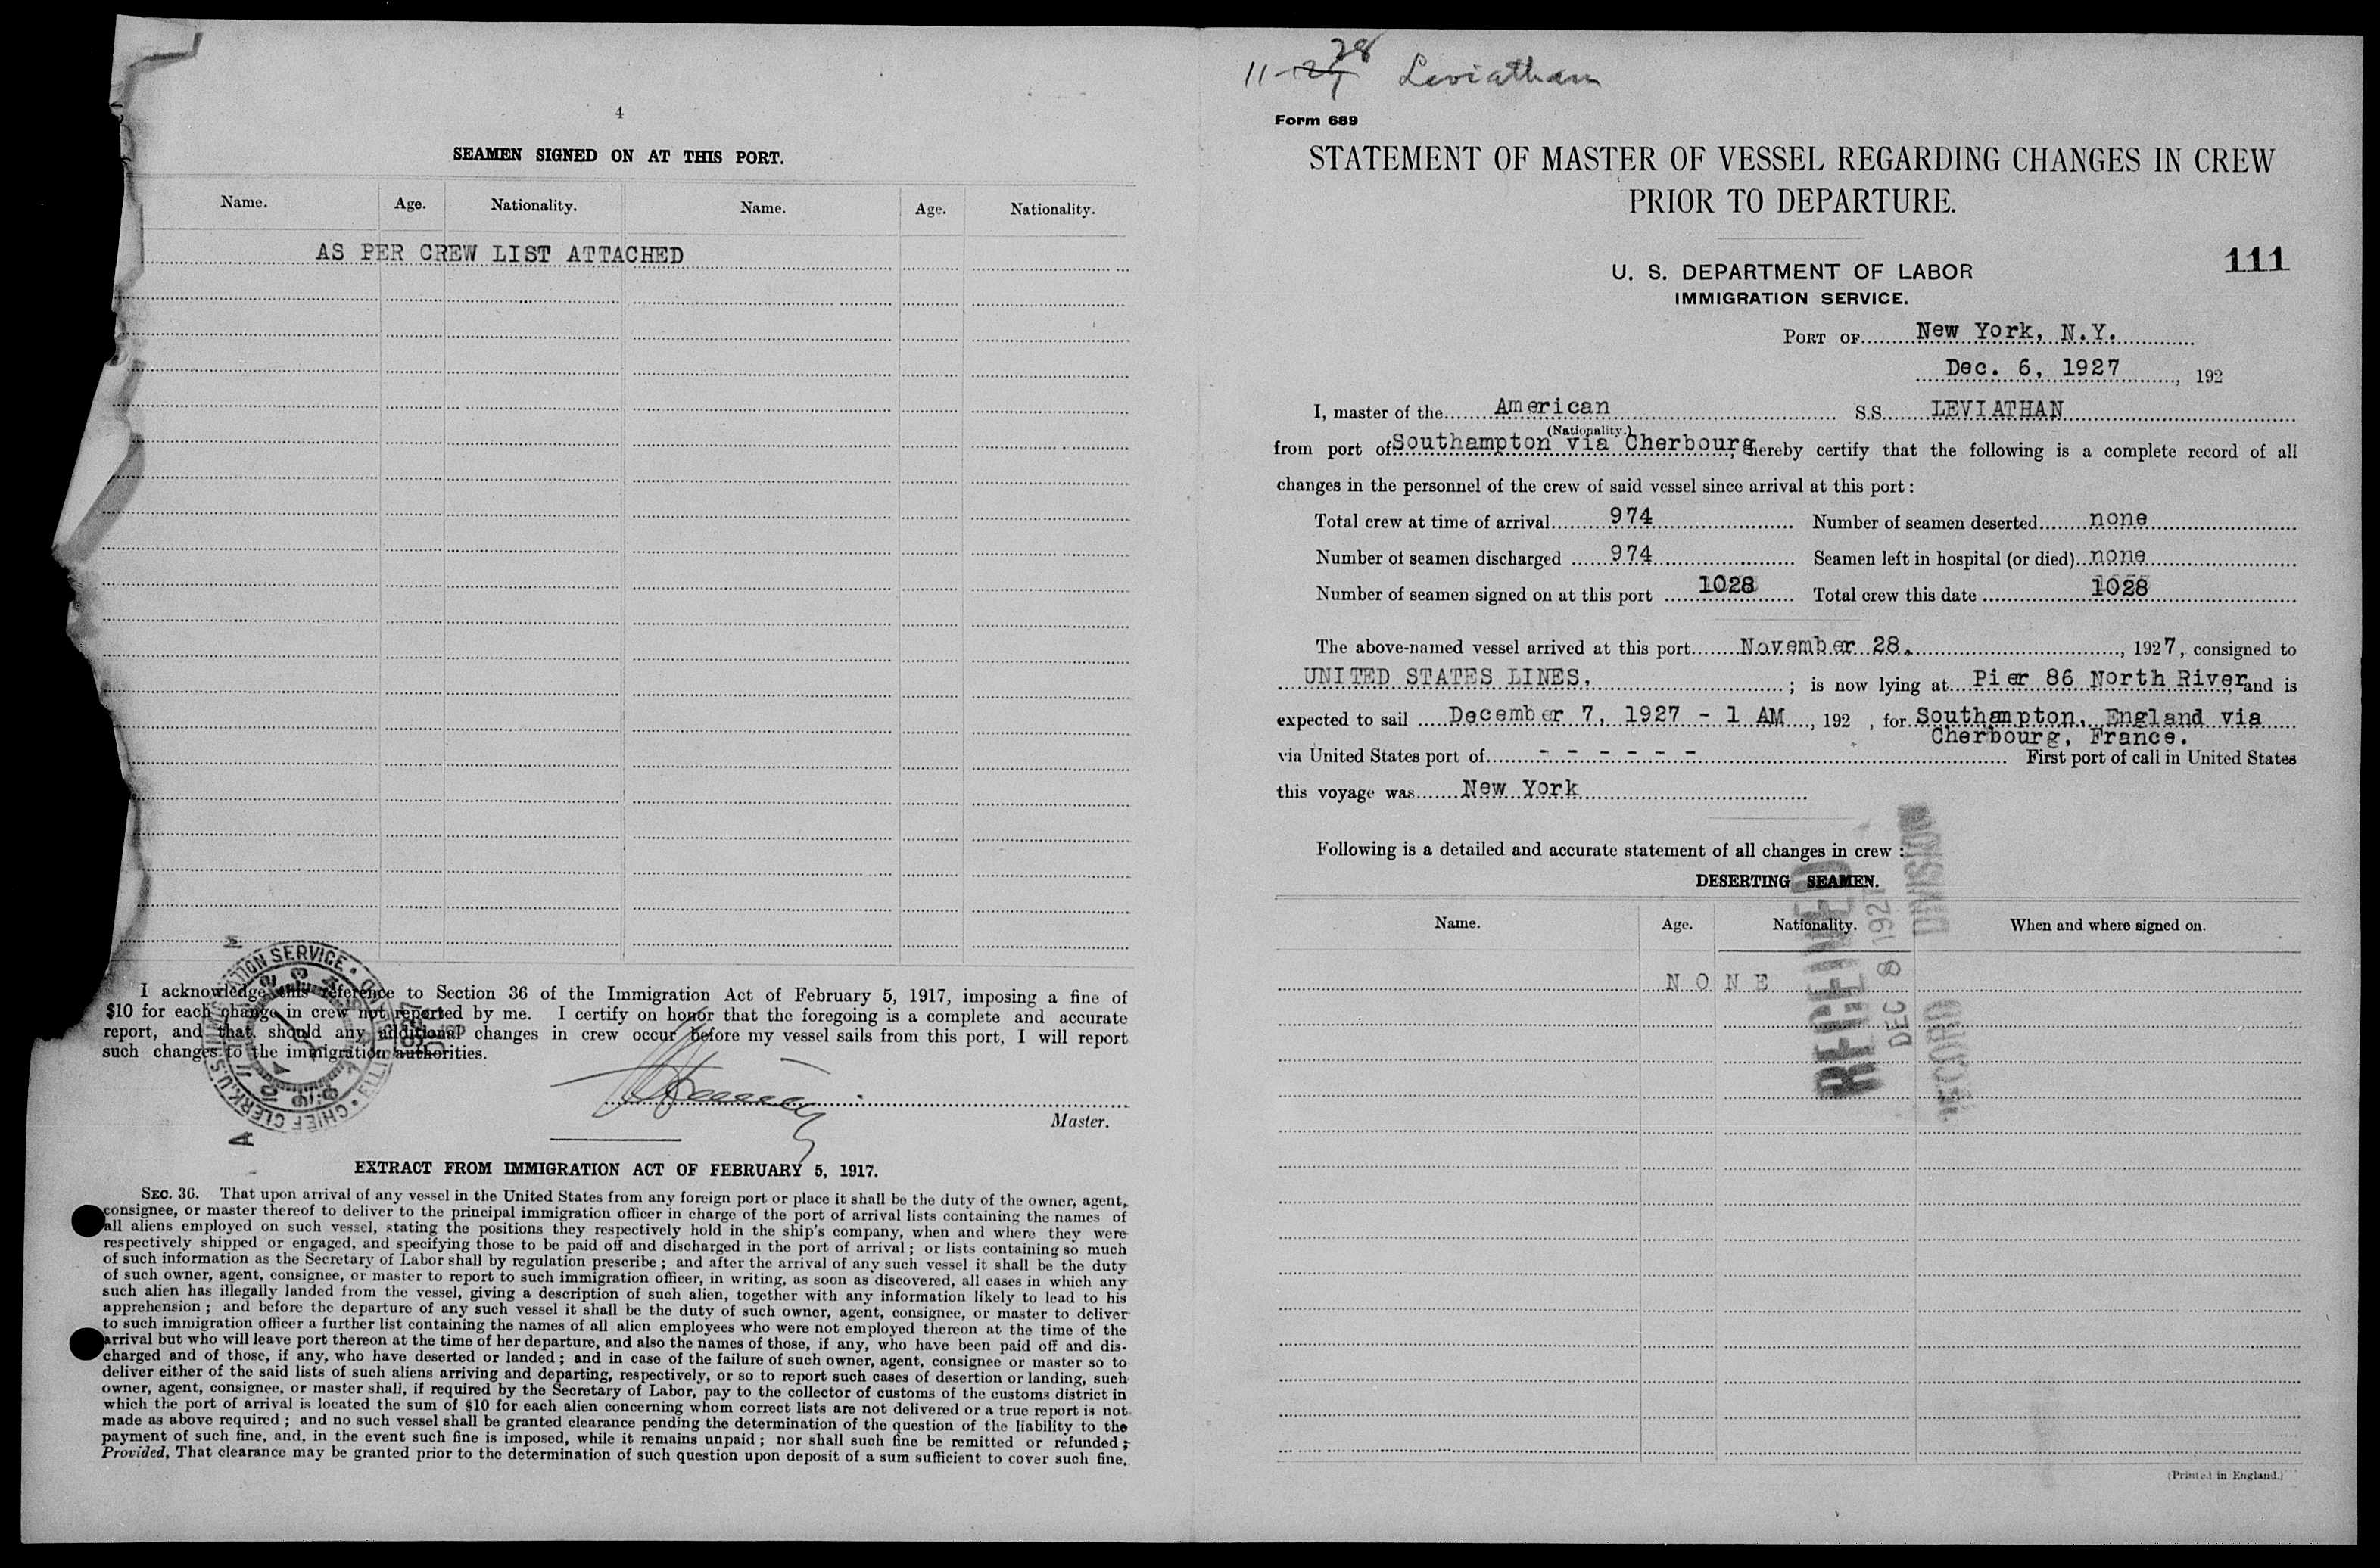 4
SEAMEN SIGNED ON AT THIS PORT.
Name. Age. Nationality. Name. Age. Nationality.
AS PER CREW LIST ATTACHED
I acknowledge this reference to Section 36 of the Immigration Act of February 5, 1917, imposing a fine of
$10 for each change in crew not reported by me. I certify on honor that the foregoing is a complete and accurate
report, and that should any additional changes in crew occur before my vessel sails from this port, I will report
such changes to the immigration authorities.
Master.
EXTRACT FROM IMMIGRATION ACT OF FEBRUARY 5, 1917.
SEC. 36. That upon arrival of any vessel in the United States from any foreign port or place it shall be the duty of the owner, agent,
consignee, or master thereof to deliver to the principal immigration officer in charge of the port of arrival lists containing the names of
all aliens employed on such vessel, stating the positions they respectively hold in the ship's company, when and where they were
respectively shipped or engaged, and specifying those to be paid off and discharged in the port of arrival; or lists containing so much
of such information as the Secretary of Labor shall by regulation prescribe; and after the arrival of any such vessel it shall be the duty
of such owner, agent, consignee, or master to report to such immigration officer, in writing, as soon as discovered, all cases in which any
such alien has illegally landed from the vessel, giving a description of such alien, together with any information likely to lead to his
apprehension; and before the departure of any such vessel it shall be the duty of such owner, agent, consignee, or master to deliver
to such immigration officer a further list containing the names of all alien employees who were not employed thereon at the time of the
arrival but who will leave port thereon at the time of her departure, and also the names of those, if any, who have been paid off and dis-
charged and of those, if any, who have deserted or landed; and in case of the failure of such owner, agent, consignee or master so to
deliver either of the said lists of such aliens arriving and departing, respectively, or so to report such cases of desertion or landing, such
owner, agent, consignee, or master shall, if required by the Secretary of Labor, pay to the collector of customs of the customs district in
which the port of arrival is located the sum of $10 for each alien concerning whom correct lists are not delivered or a true report is not
made as above required; and no such vessel shall be granted clearance pending the determination of the question of the liability to the
payment of such fine, and, in the event such fine is imposed, while it remains unpaid; nor shall such fine be remitted or refunded;
Provided, That clearance may be granted prior to the determination of such question upon deposit of a sum sufficient to cover such fine.
CHIEF CLERK, U.S. IMMIGRATION SERVICE
11- 28 Leviathan
Form 689
STATEMENT OF MASTER OF VESSEL REGARDING CHANGES IN CREW
PRIOR TO DEPARTURE.
111
U. S. DEPARTMENT OF LABOR
IMMIGRATION SERVICE.
PORT OF New York, N.Y.
Dec. 6, 1927, 192
I, master of the American S.S. LEVIATHAN
(Nationality.)
from port of Southampton via Cherbourg, hereby certify that the following is a complete record of all
changes in the personnel of the crew of said vessel since arrival at this port:
Total crew at time of arrival 974 Number of seamen deserted none
Number of seamen discharged 974 Seamen left in hospital (or died) none
Number of seamen signed on at this port 1028 Total crew this date 1028
The above-named vessel arrived at this port November 28, , 1927, consigned to
UNITED STATES LINES, ; is now lying at Pier 86 North River and is
expected to sail December 7, 1927 - 1 AM, 192 , for Southampton, England via
Cherbourg, France.
via United States port of - - - - - - First port of call in United States
this voyage was New York
Following is a detailed and accurate statement of all changes in crew:
DESERTING SEAMEN.
Name. Age. Nationality. When and where signed on.
N O N E
RECEIVED
DEC 8 1927
RECORD DIVISION
(Printed in England.)